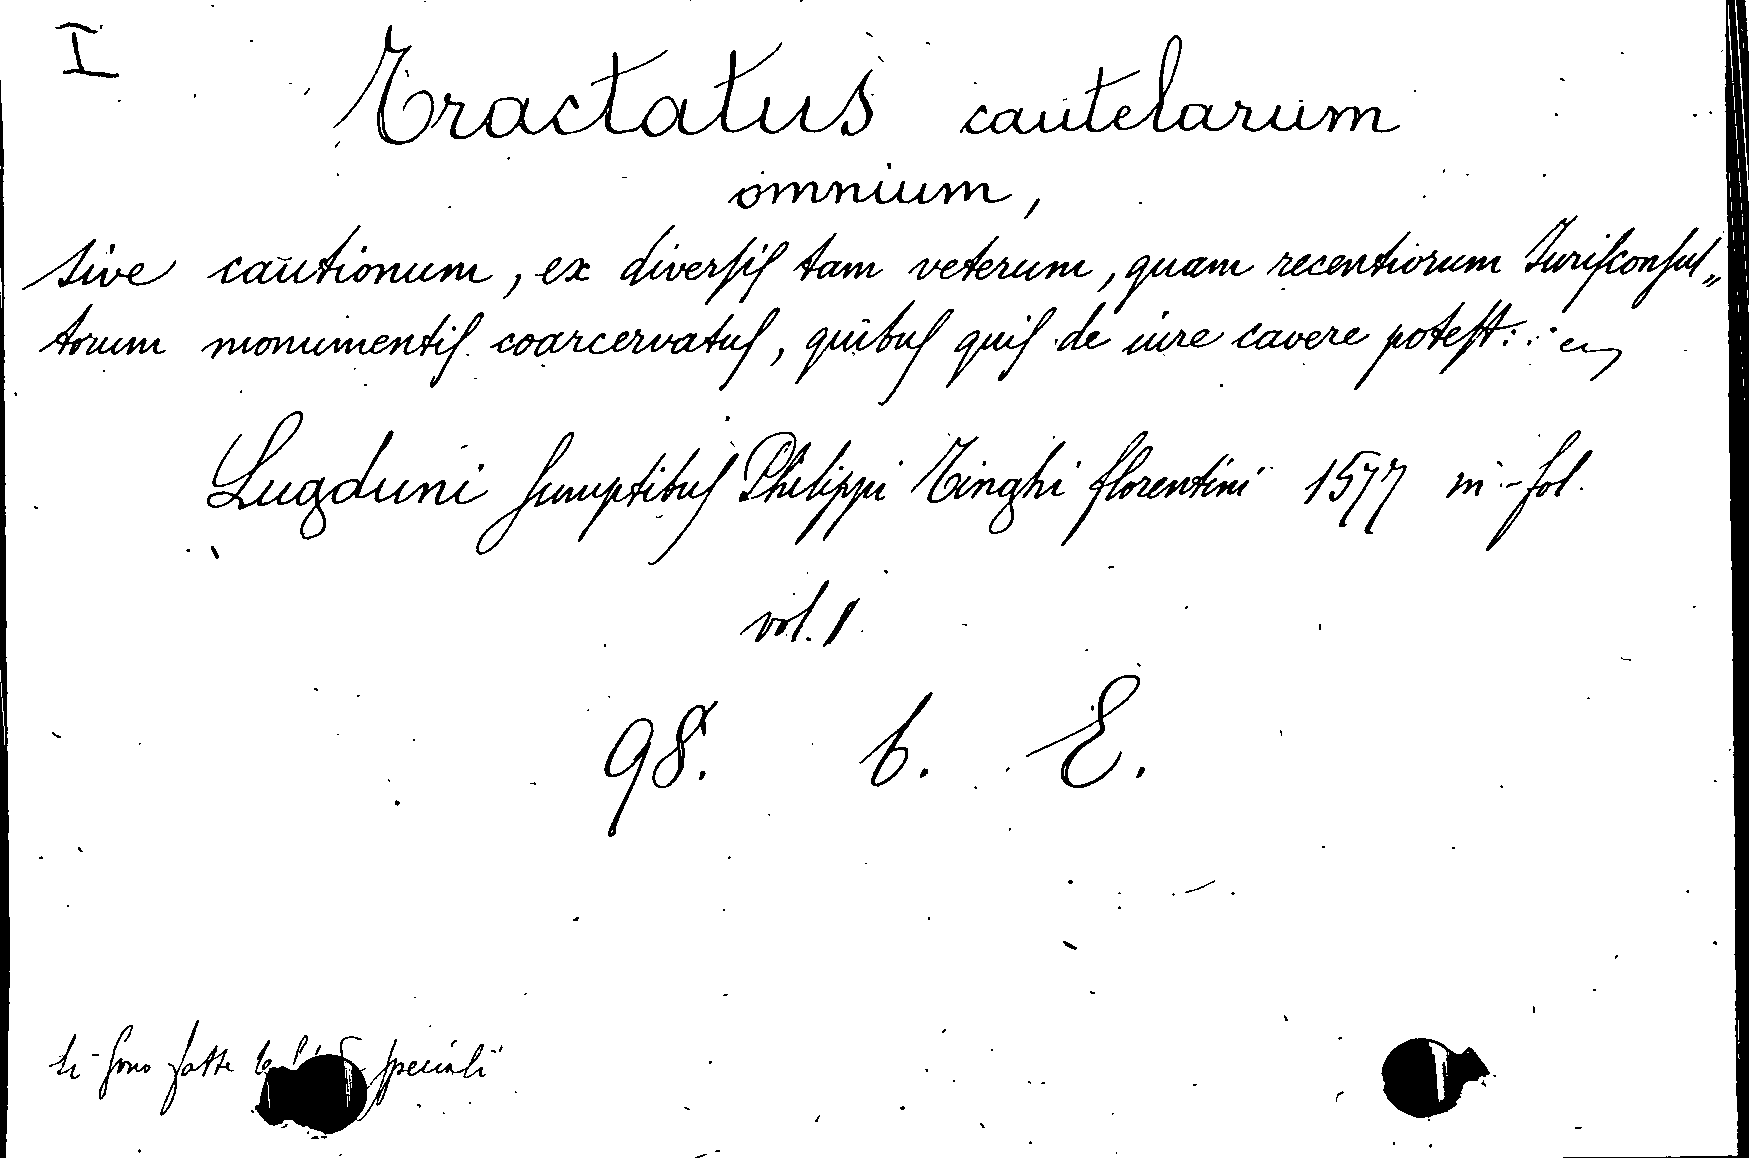 I
Tractatus cautelarum
omnium,
sive cautionum, ex diversis tam veterum, quam recentiorum Jurisconsul„
torum monumentis coarcervatus, quibus quis de iure cavere potest:
Lugduni sumptibus Philippi Tinghi florentini 1577 in-fol.
vol. 1
98. b. E.
Si sono fatte speciali